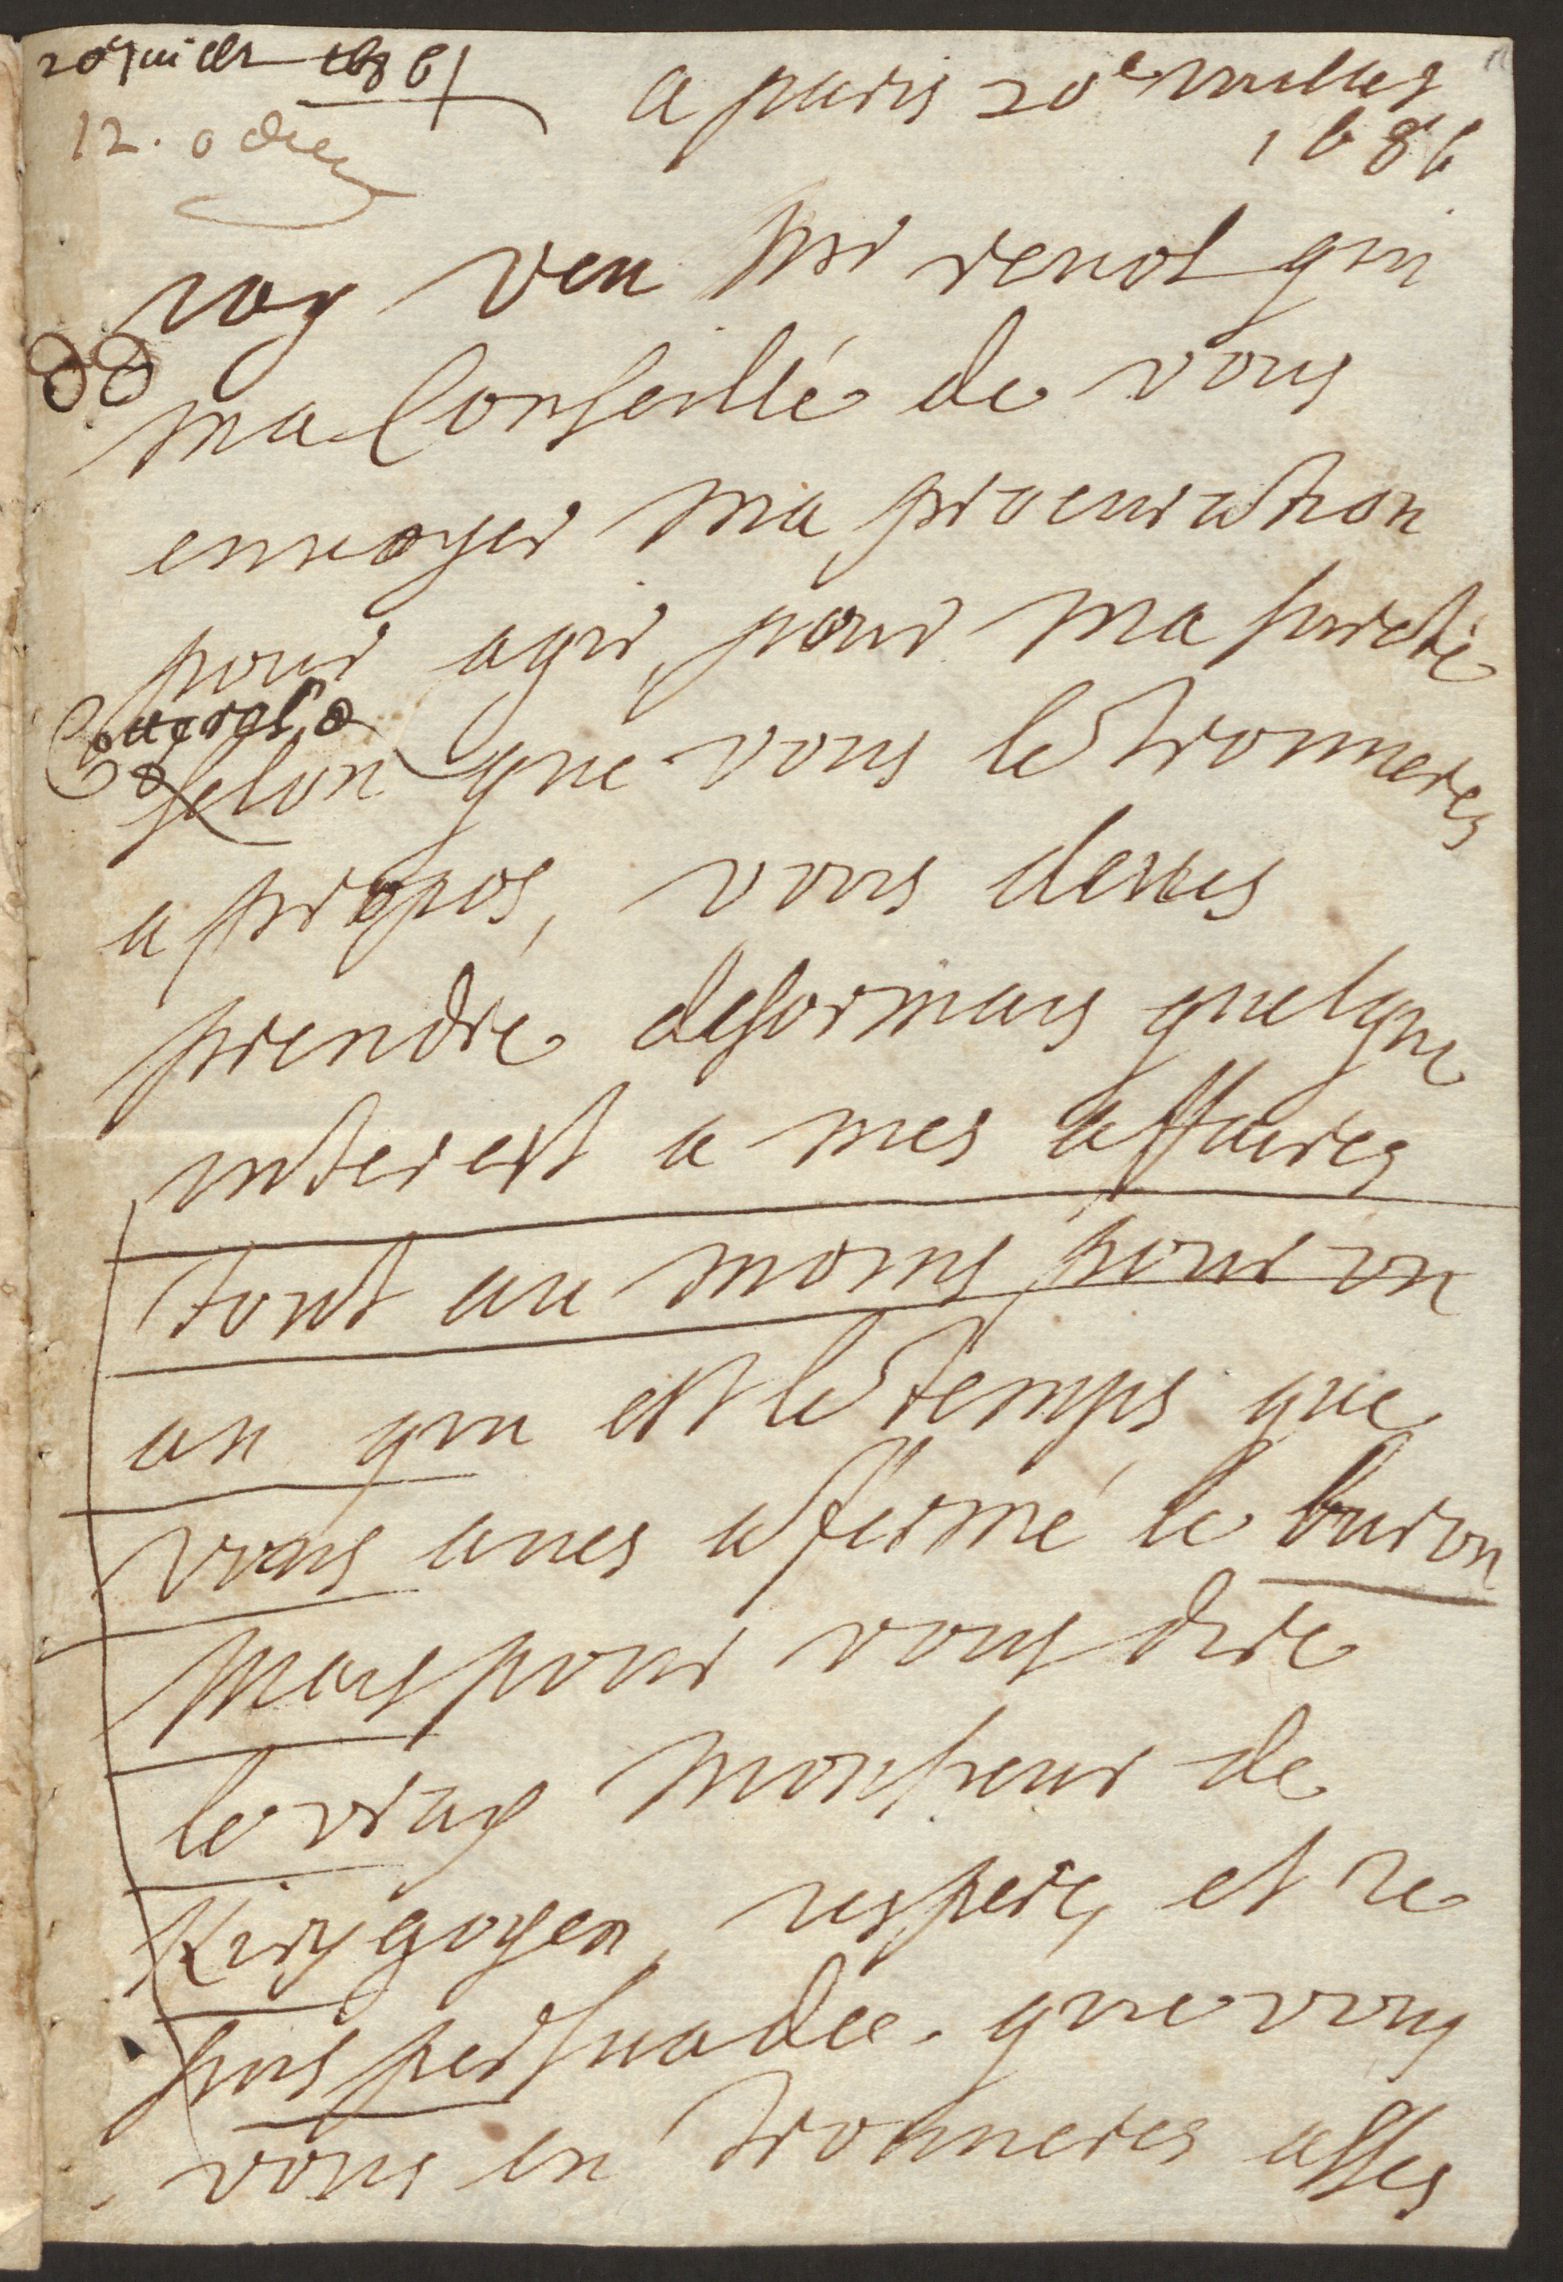 20e juillet 1686
a paris 20e juillet
1686
12.
jay veu mr renot qui
ma Conseillé de vous
envoyer ma procuration
pour agir pour ma sureté
selon que vous le trouueres
a propos, vous deues
prendre desormais quelque
interest a mes affaires
tout au moins pour un
an qui est le temps que
vous aues affermé le buron
mais pour vous dire
le vray monsieur de
jespere, et je
suis persuadée que vous
vous en trouueres asses